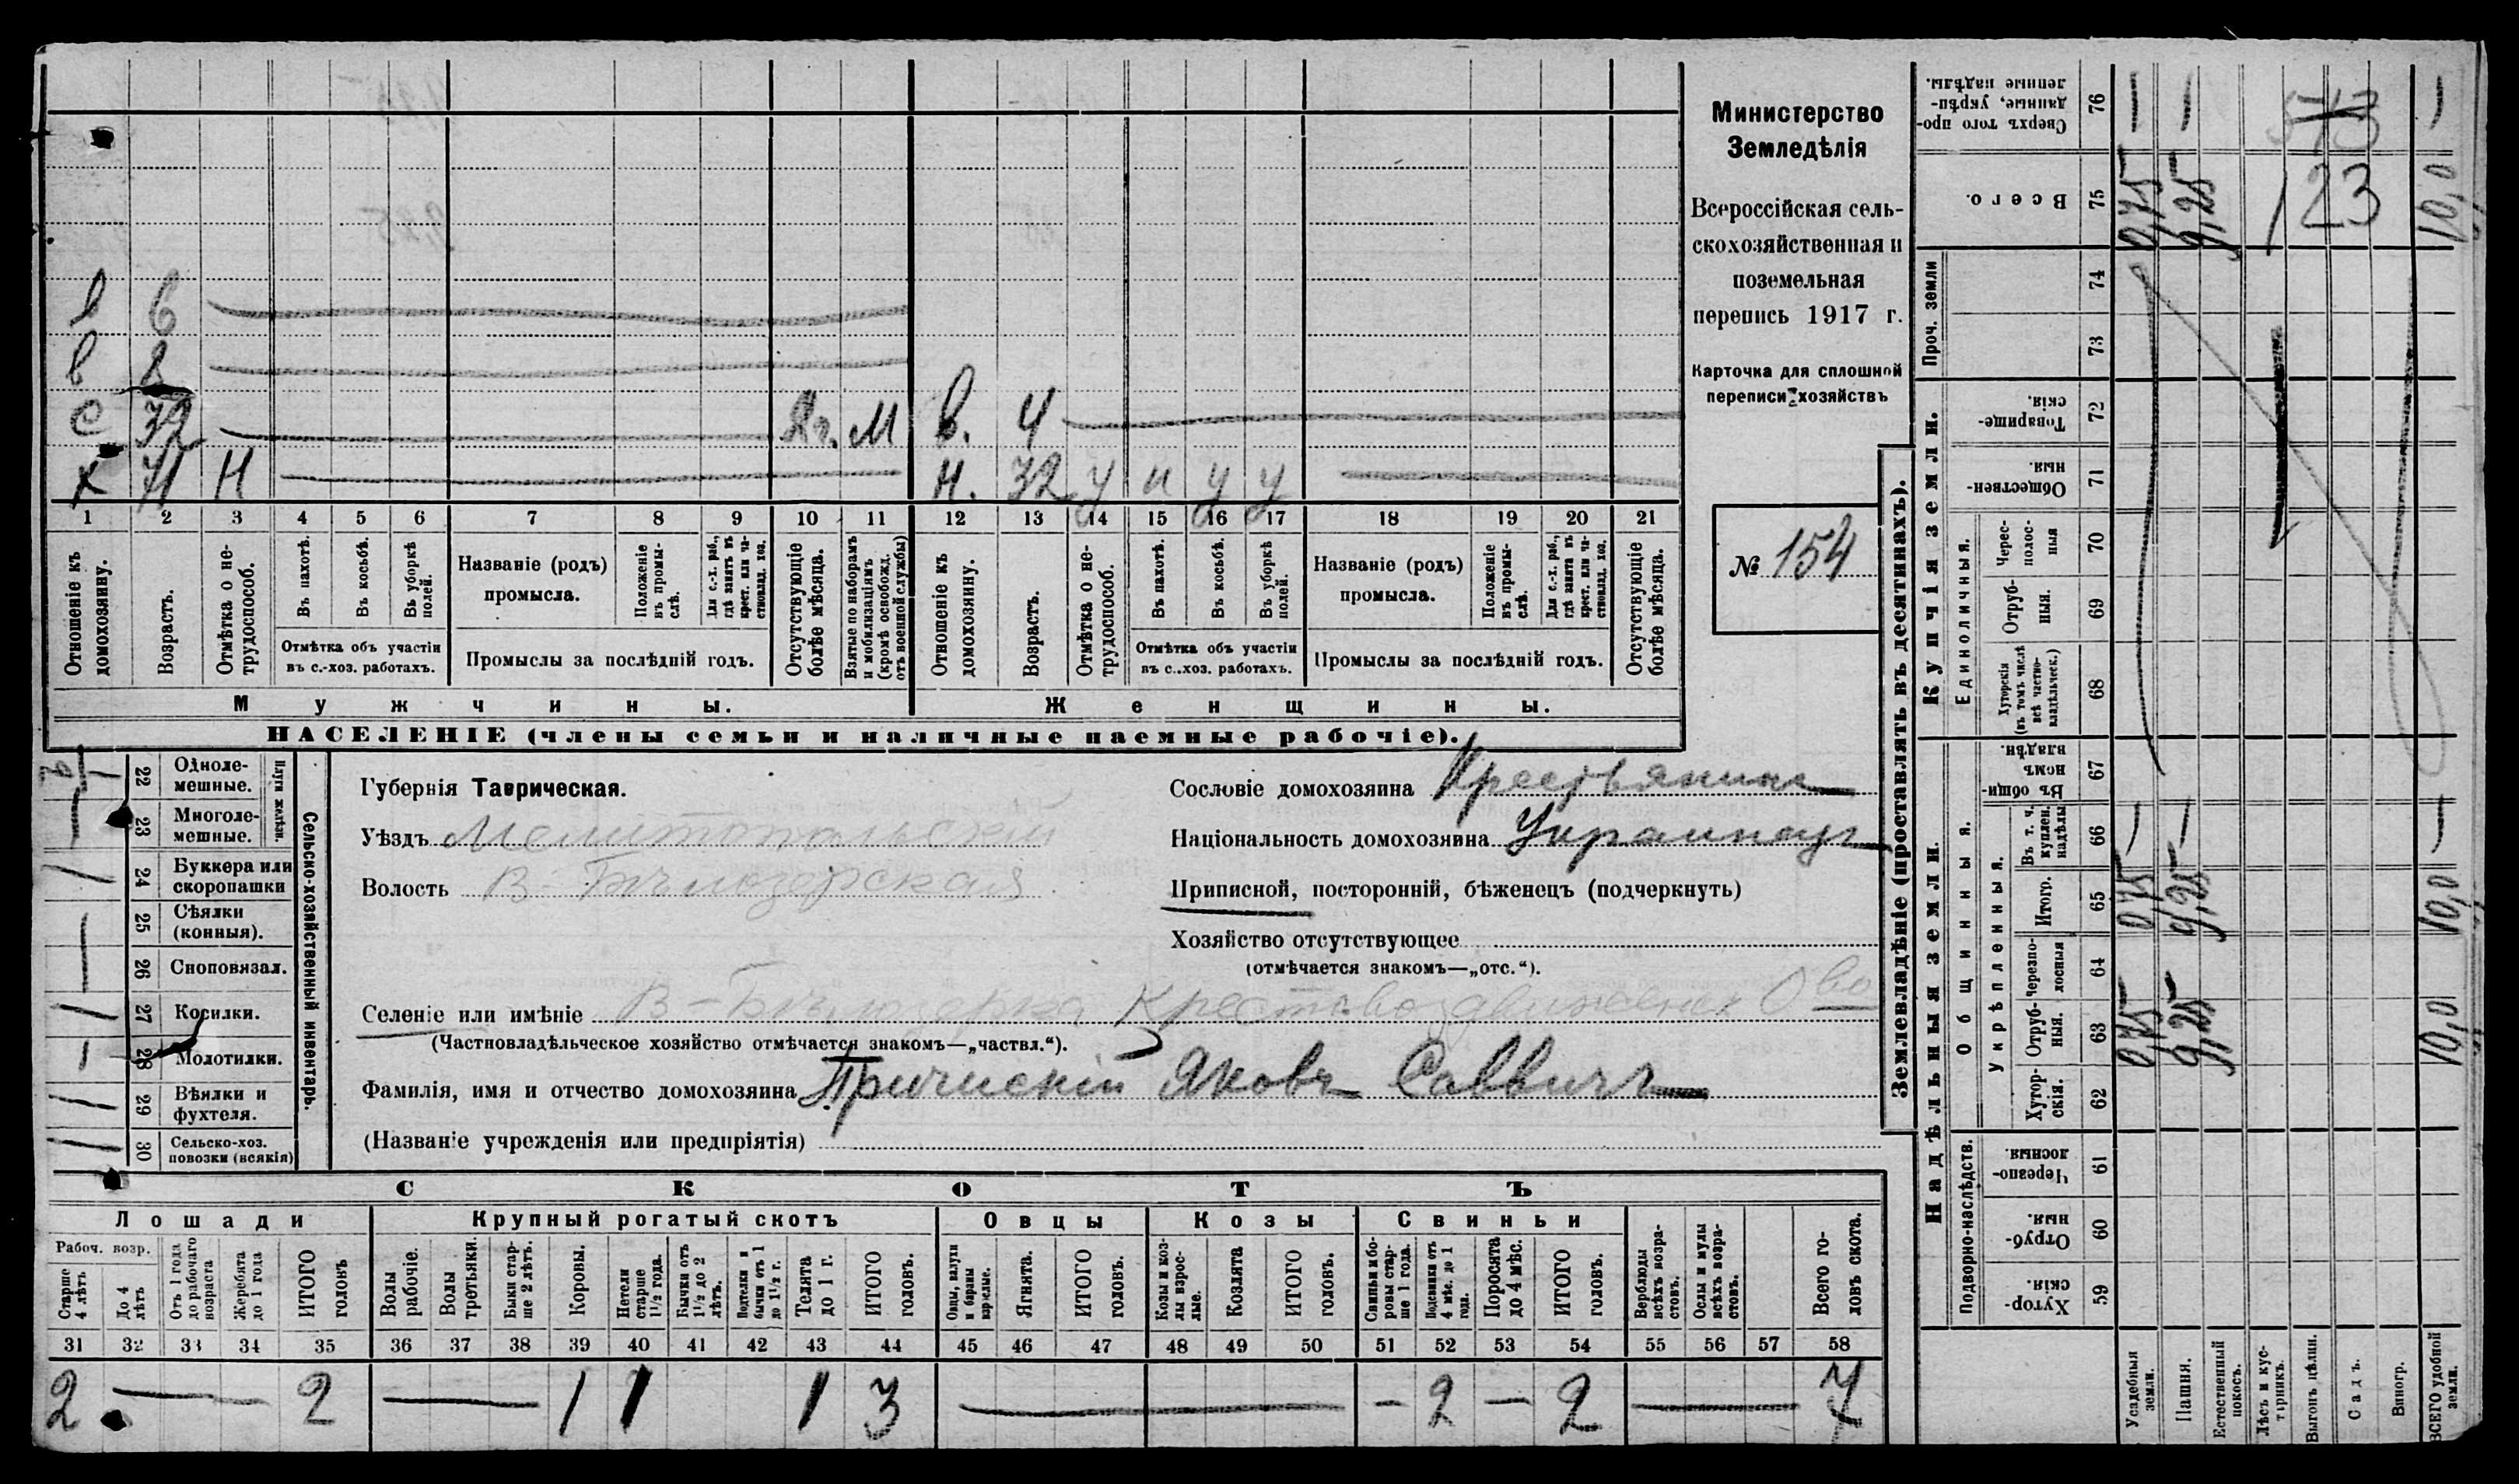 в 6
в 8
с 32 Яг. М в. 4
х 71 Н н. 32 у н у у
1 2 3 4 5 6 7 8 9 10 11 12 13 14 15 16 17 18 19 20 21
Отношеніе къ домохозяину.
Возрастъ.
Отмѣтка о не-
трудоспособ.
Въ пахотѣ.
Въ косьбѣ.
Въ уборкѣ
полей.
Отмѣтка объ участіи
въ с.-хоз. работахъ.
Названіе (родъ)
промысла.
Положеніе
въ промы-
слѣ.
Для с.-х. раб.,
гдѣ занятъ въ
крест. или ча-
стновлад. хоз.
Промыслы за послѣдній годъ.
Отсутствующіе
болѣе мѣсяца.
Взятые по наборамъ
и мобилизаціямъ
(кромѣ освобожд.
отъ военной службы)
Отношеніе къ
домохозяину.
Возрастъ.
Отмѣтка о не-
трудоспособ.
Въ пахотѣ.
Въ косьбѣ.
Въ уборкѣ
полей.
Отмѣтка объ участіи
въ с.-хоз. работахъ.
Названіе (родъ)
промысла.
Положеніе
въ промы-
слѣ.
Для с.-х. раб.,
гдѣ занята въ
крест. или ча-
стновлад. хоз.
Промыслы за послѣдній годъ.
Отсутствующіе
болѣе мѣсяца.
Мужчины. Женщины.
НАСЕЛЕНІЕ (члены семьи и наличные наемные рабочіе).
Министерство
Земледѣлія
Всероссійская сель-
скохозяйственная и
поземельная
перепись 1917 г.
Карточка для сплошной
переписи хозяйствъ
№ 154
22 Одноле-
мешные.
23 Многоле-
мешные.
Плуги желѣзн.
24 Буккера или
скоропашки
25 Сѣялки
(конныя).
26 Сноповязал.
27 Косилки.
28 Молотилки.
29 Вѣялки и
фухтеля.
30 Сельско-хоз.
повозки (всякія)
Сельско-хозяйственный инвентарь.
Губернія Таврическая.
Уѣздъ Мелитопольскій
Волость В-Бѣлозерская
Сословіе домохозяина Крестьянинъ
Національность домохозяина Украинецъ
Приписной, посторонній, бѣженецъ (подчеркнуть)
Хозяйство отсутствующее
(отмѣчается знакомъ—„отс.“).
Селеніе или имѣніе В-Бѣлозерка Крестовоздвиженск О во
(Частновладѣльческое хозяйство отмѣчается знакомъ—„частвл.“).
Фамилія, имя и отчество домохозяина Яковъ Саввичъ
(Названіе учрежденія или предпріятія)
СКОТЪ
Лошади Крупный рогатый скотъ Овцы Козы Свиньи
Рабоч. возр.
Старше
4 лѣтъ
До 4
лѣтъ
Отъ 1 года
до рабочаго
возраста
Жеребята
до 1 года
ИТОГО
головъ
Волы
рабочіе.
Волы
третьяки.
Быки стар-
ше 2 лѣтъ.
Коровы.
Нетели
старше
1½ года.
Бычки отъ
1½ до 2
лѣтъ.
Подтелки и
бычки отъ 1
до 1½ г.
Телята
до 1 г.
ИТОГО
головъ.
Овцы, валухи
и бараны
взрослые.
Ягнята.
ИТОГО
головъ.
Козы и коз-
лы взрос-
лые.
Козлята
ИТОГО
головъ.
Свиньи и бо-
ровы стар-
ше 1 года.
Подсвинки отъ
4 мѣс. до 1
года.
Поросята
до 4 мѣс.
ИТОГО
головъ.
Верблюды
всѣхъ возра-
стовъ.
Ослы и мулы
всѣхъ возра-
стовъ.
Всего го-
ловъ скота.
31 32 33 34 35 36 37 38 39 40 41 42 43 44 45 46 47 48 49 50 51 52 53 54 55 56 57 58
2 — 2 — 1 1 1 3 — - 2 — 2 — 7
Землевладѣніе (проставлять въ десятинахъ).
Купчія земли.
Надѣльныя земли.
Сверхъ того про-
данные, укрѣп-
ленные надѣлы.
76
Всего. 75
Проч. земли 74 73
Товарище-
скія. 72
Обществен-
ныя. 71
Единоличныя.
Черес-
полос-
ныя 70
Отруб-
ныя. 69
Хуторскія
(въ томъ числѣ
всѣ частно-
владѣльческ.) 68
Общинныя.
Въ общи-
номъ
владѣн. 67
Укрѣпленныя.
Въ т. ч.
куплен.
надѣлы 66
Итого. 65
Черезпо-
лосныя 64
Отруб-
ныя. 63
Хутор-
скія. 62
Подворно-наслѣдств.
Черезпо-
лосныя 61
Отруб-
ныя. 60
Хутор-
скія. 59
Усадебныя
земли.
Пашня.
Естественный
покосъ.
Лѣсъ и кус-
тарникъ.
Выгонъ цѣлин.
Садъ.
Виногр.
ВСЕГО удобной
земли.
513
123
0,75 9,25 10,0
0,75 9,25 10,0
0,75 9,25 10,0